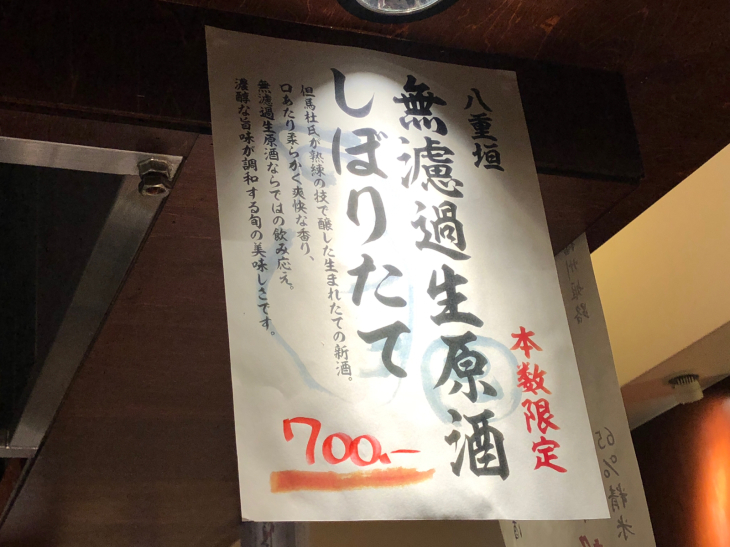 八重垣
無濾過生原酒
しぼりたて
但馬杜氏が熟練の技で醸した生まれたての新酒。
口あたり柔らかく爽快な香り、
無濾過生原酒ならではの飲み応え。
濃醇な旨味が調和する旬の美味しさです。
本数限定
700.-
65%精米